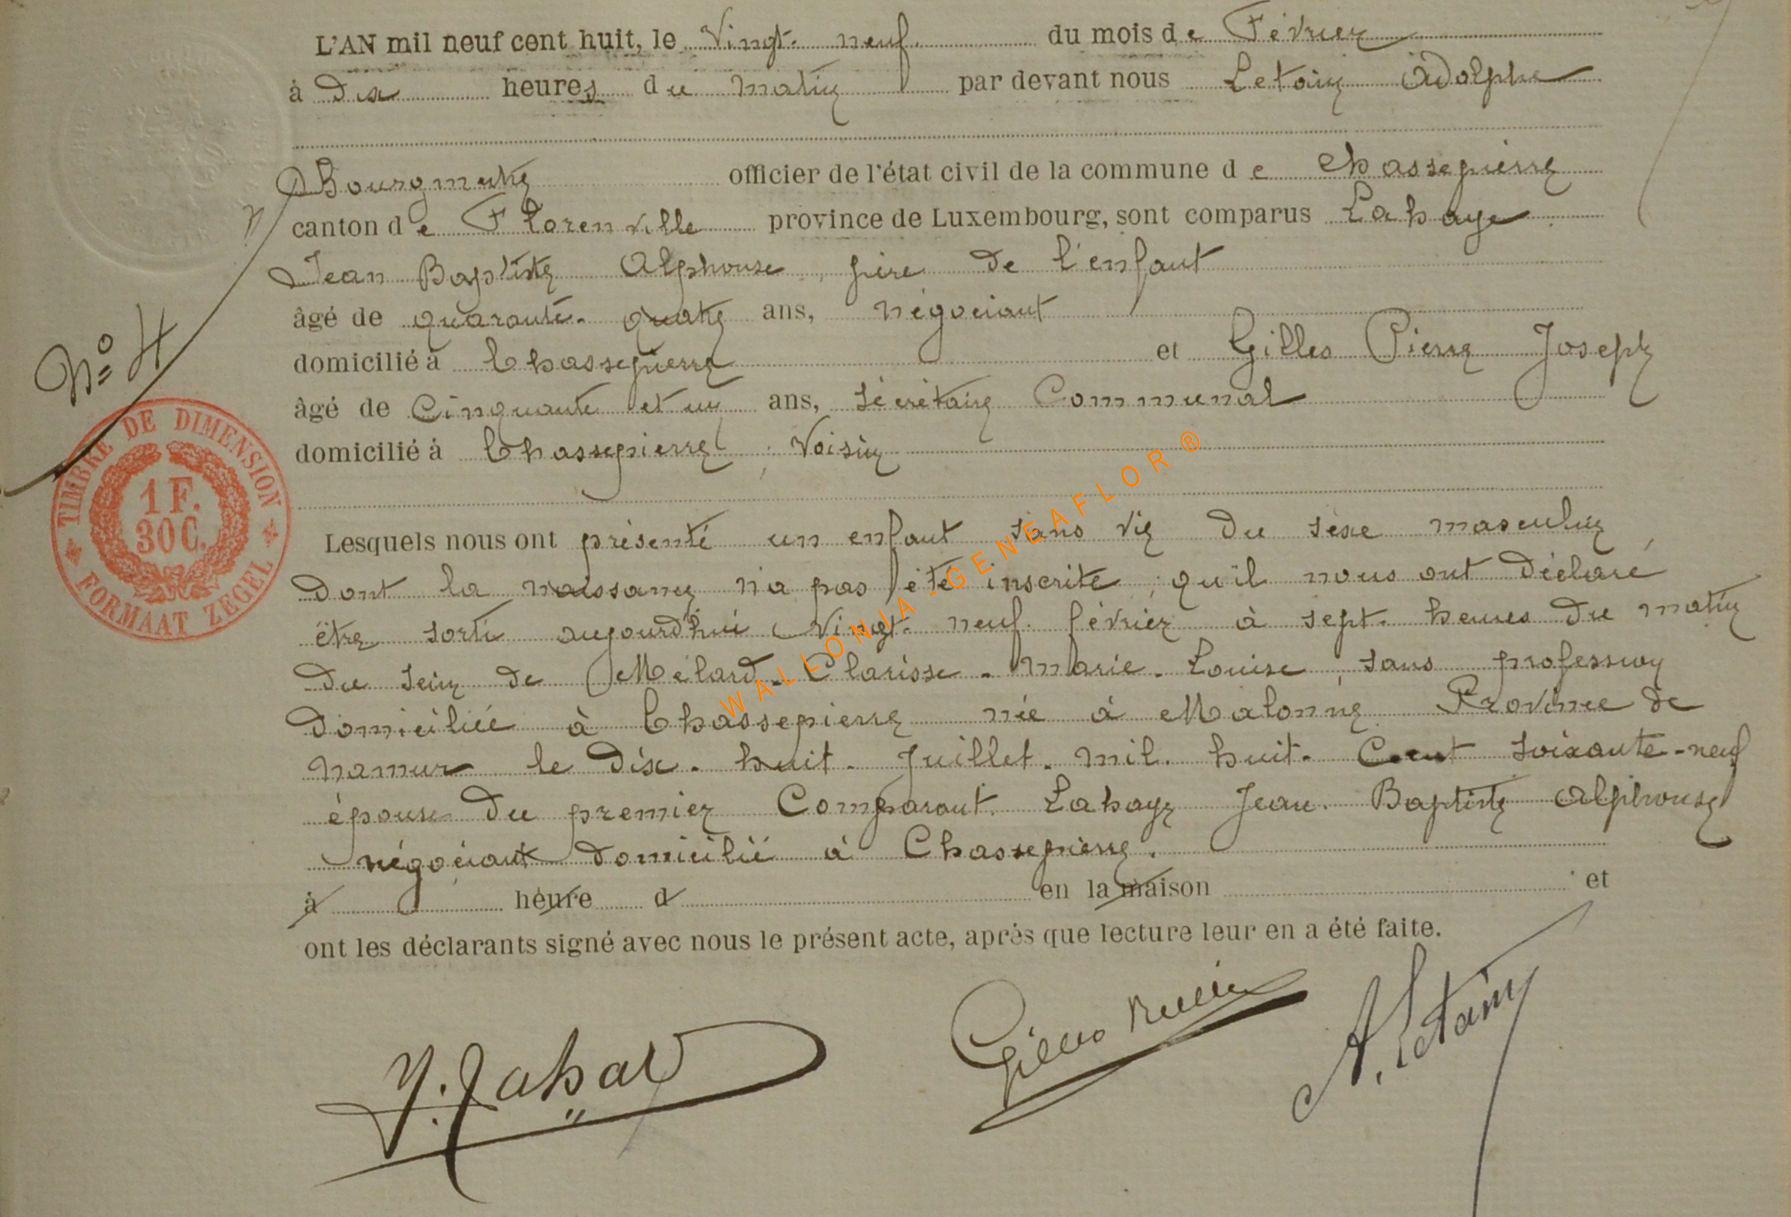 L'AN mil neuf cent huit, le Vingt-neuf du mois de Février
à dix heures du matin par devant nous Letain Adolphe
Bourgmestre officier de l'état civil de la commune de Chassepierre
canton de Florenville province de Luxembourg, sont comparus Lahaye
Jean Baptiste Alphonse, père de l'enfant
âgé de quarante-quatre ans, négociant
domicilié à Chassepierre et Gilles Pierre Joseph
âgé de Cinquante et un ans, sécrétaire Communal
domicilié à Chassepierre, Voisin
Nº 4
TIMBRE DE DIMENSION
1 F.
30 C.
FORMAAT ZEGEL
Lesquels nous ont présenté un enfant sans vie du sexe masculin
dont la naissance n'a pas été inscrite, qu'il nous ont déclaré
être sorti aujourd'hui Vingt-neuf février à sept heures du matin
du sein de Mélard-Clarisse-Marie-Louise, sans profession
domiciliée à Chassepierre née à Malonne Province de
Namur le dix-huit Juillet mil huit Cent soixante-neuf
épouse du premier Comparant Lahaye Jean Baptiste Alphonse
négociant domicilié à Chassepierre.
à heure d en la maison et
ont les déclarants signé avec nous le présent acte, après que lecture leur en a été faite.
Gilles A. Letain
WALLONIA-GENEAFLOR®